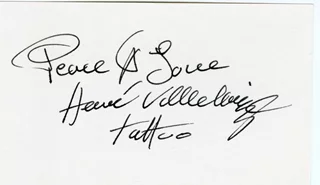 Peace & Love
Hervé Villechaize
Tattoo